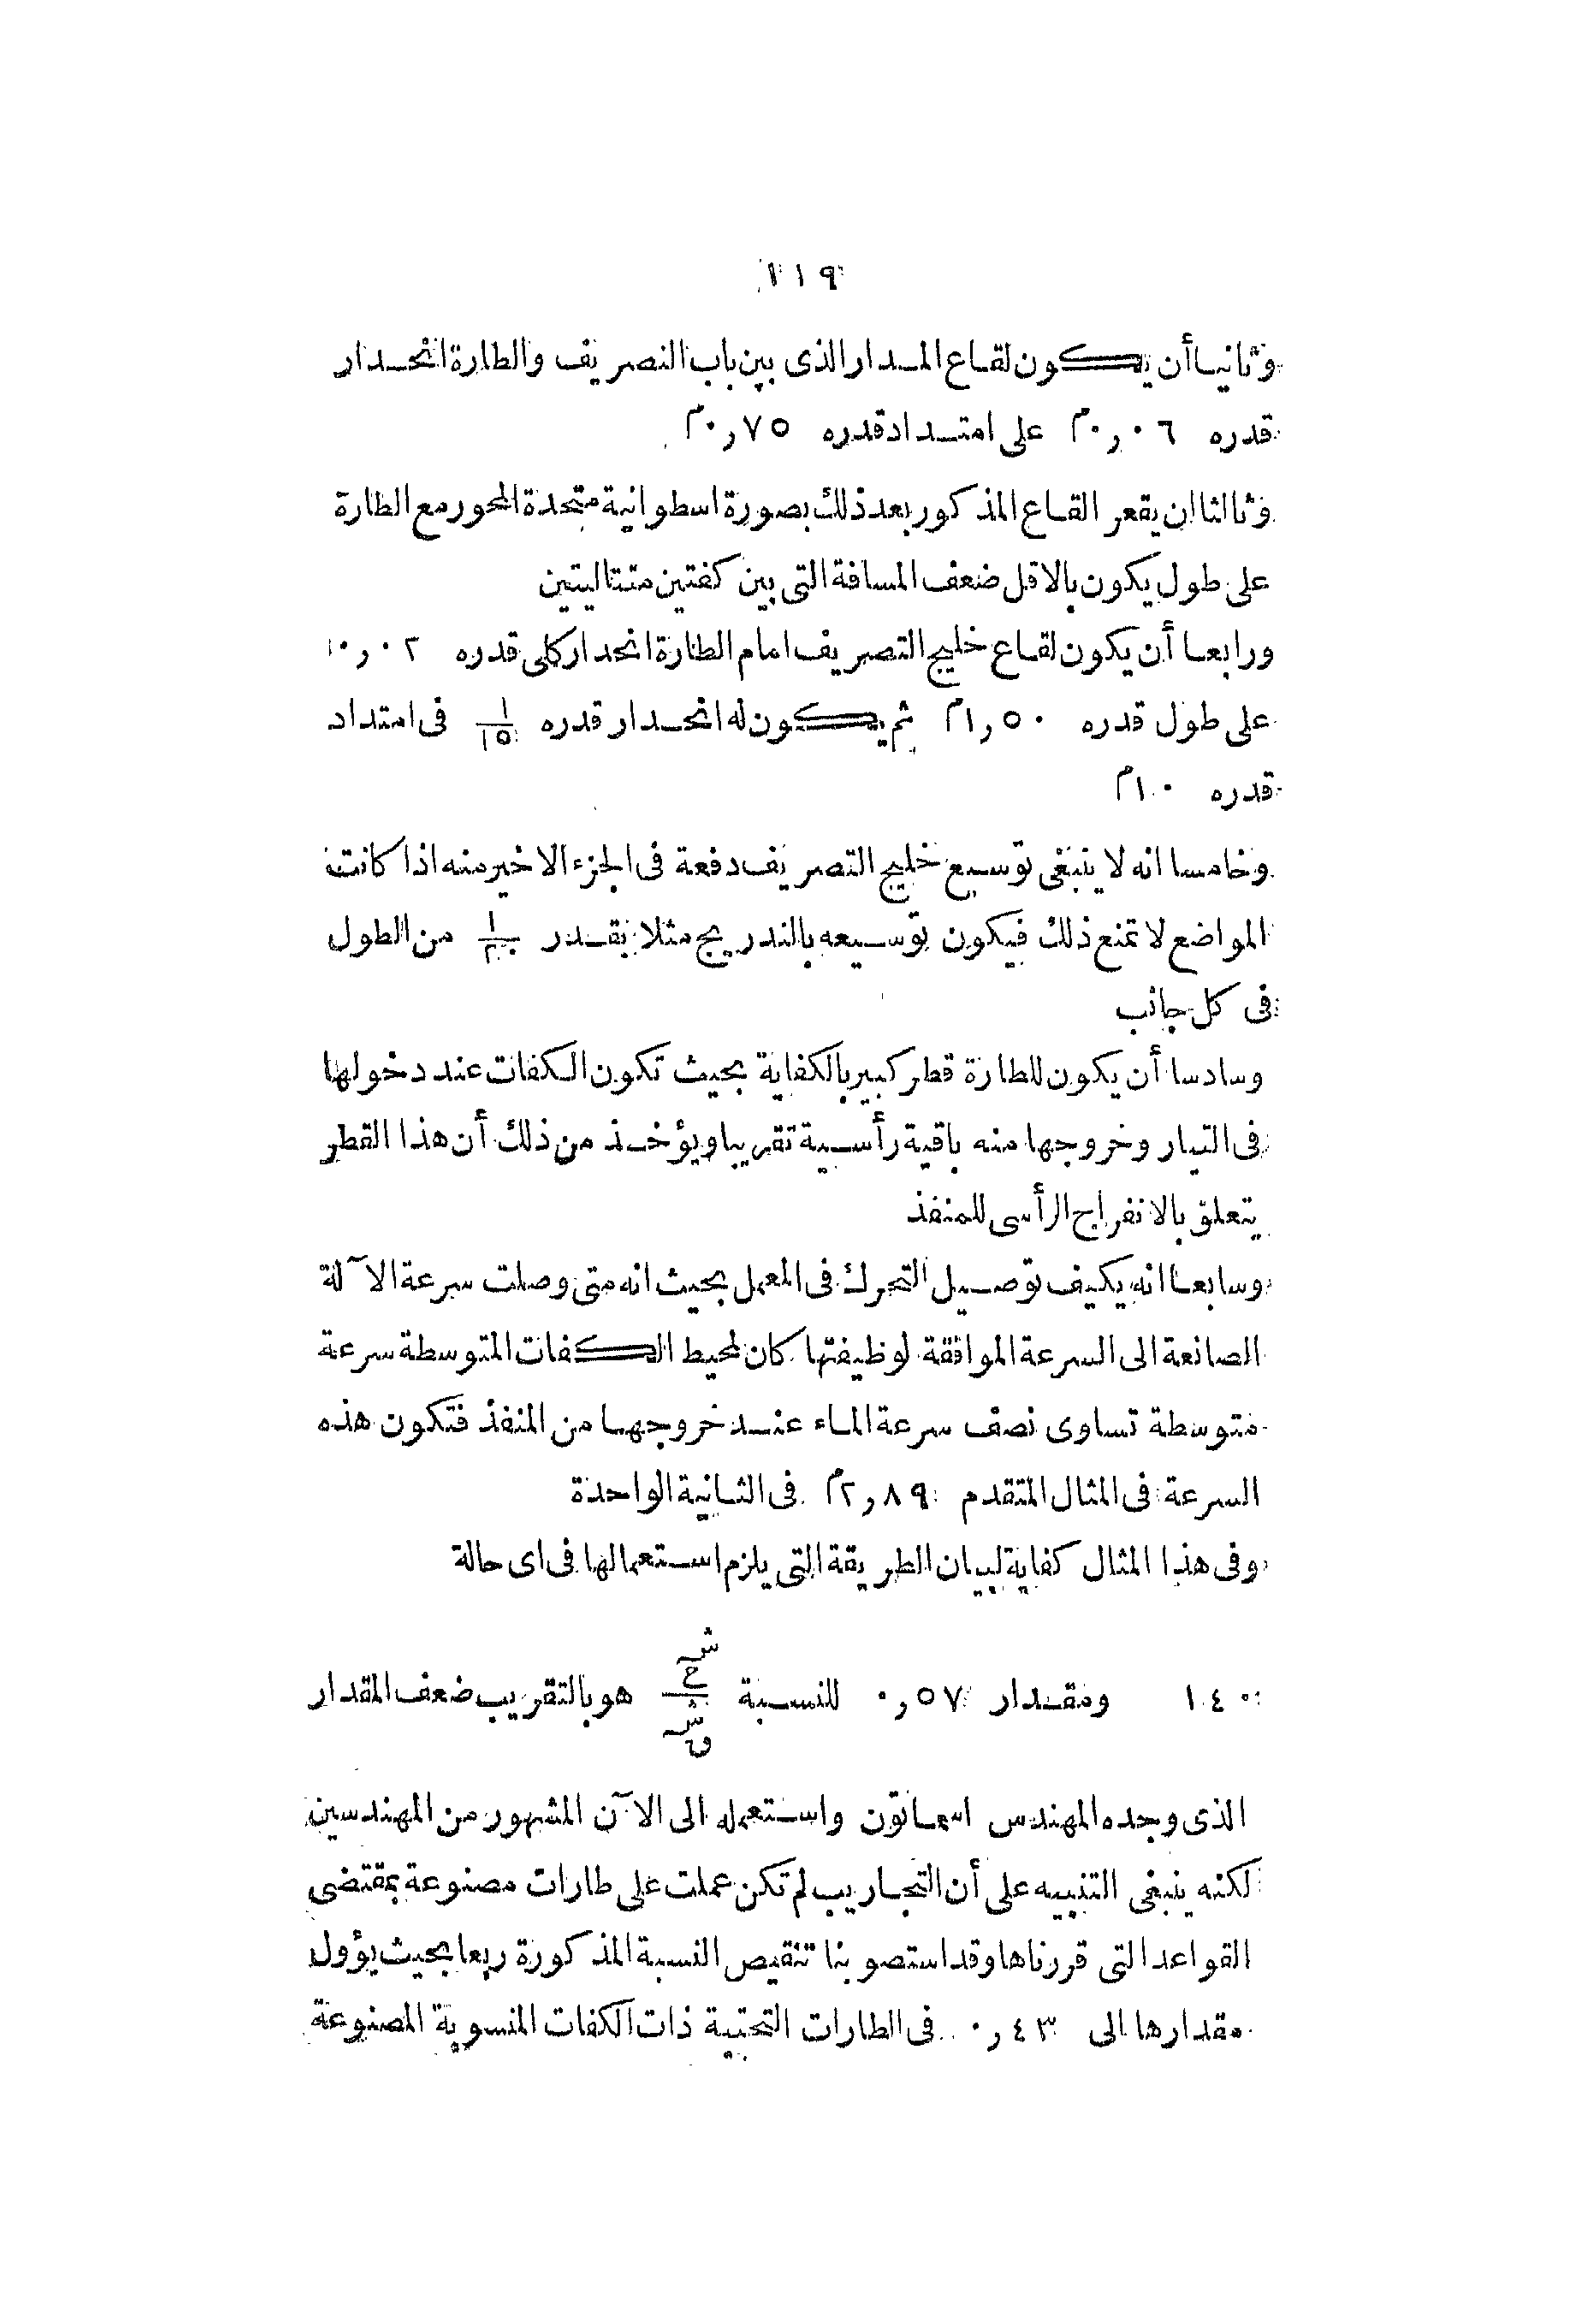 ١١٩
وثانيا أن يكون لقاع المدار الذى بين باب التصريف والطارة انحدار
قدره ٠٦ر٠م على امتداد قدره ٧٥ر٠م
وثالثا ان يقعر القاع المذكور بعد ذلك بصورة اسطوانية متحدة المحور مع الطارة
على طول يكون بالاقل ضعف المسافة التى بين كفتين متتاليتين
ورابعا أن يكون لقاع خليج التصريف امام الطارة انحدار كلى قدره ٠٢ر٠
على طول قدره ٥٠ر١م ثم يكون له انحدار قدره ١/١٥ فى امتداد
قدره ١٠م
وخامسا انه لا ينبغى توسيع خليج التصريف دفعة فى الجزء الاخير منه اذا كانت
المواضع لا تمنع ذلك فيكون توسيعه بالتدريج مثلا بقدر من الطول
فى كل جانب
وسادسا أن يكون للطارة قطر كبير بالكفاية بحيث تكون الكفات عند دخولها
فى التيار وخروجها منه باقية رأسية تقريبا ويؤخذ من ذلك أن هذا القطر
يتعلق بالانفراج الرأسى للمنفذ
وسابعا انه يكيف توصيل التحرك فى المعمل بحيث انه متى وصلت سرعة الآلة
الصانعة الى السرعة الموافقة لوظيفتها كان لمحيط الكفات المتوسطة سرعة
متوسطة تساوى نصف سرعة الماء عند خروجها من المنفذ فتكون هذه
السرعة فى المثال المتقدم ٨٩ر٢م فى الثانية الواحدة
وفى هذا المثال كفاية لبيان الطريقة التى يلزم استعمالها فى اى حالة
١٤٠ ومقدار ٥٧ر٠ للنسبة هو بالتقريب ضعف المقدار
الذى وجده المهندس اسماتون واستعمله الى الآن المشهور من المهندسين
لكنه ينبغى التنبيه على أن التجاريب لم تكن عملت على طارات مصنوعة بمقتضى
القواعد التى قررناها وقد استصوبنا تنقيص النسبة المذكورة ربعا بحيث يؤول
مقدارها الى ٤٣ر٠ فى الطارات التحتية ذات الكفات المنسوبة المصنوعة